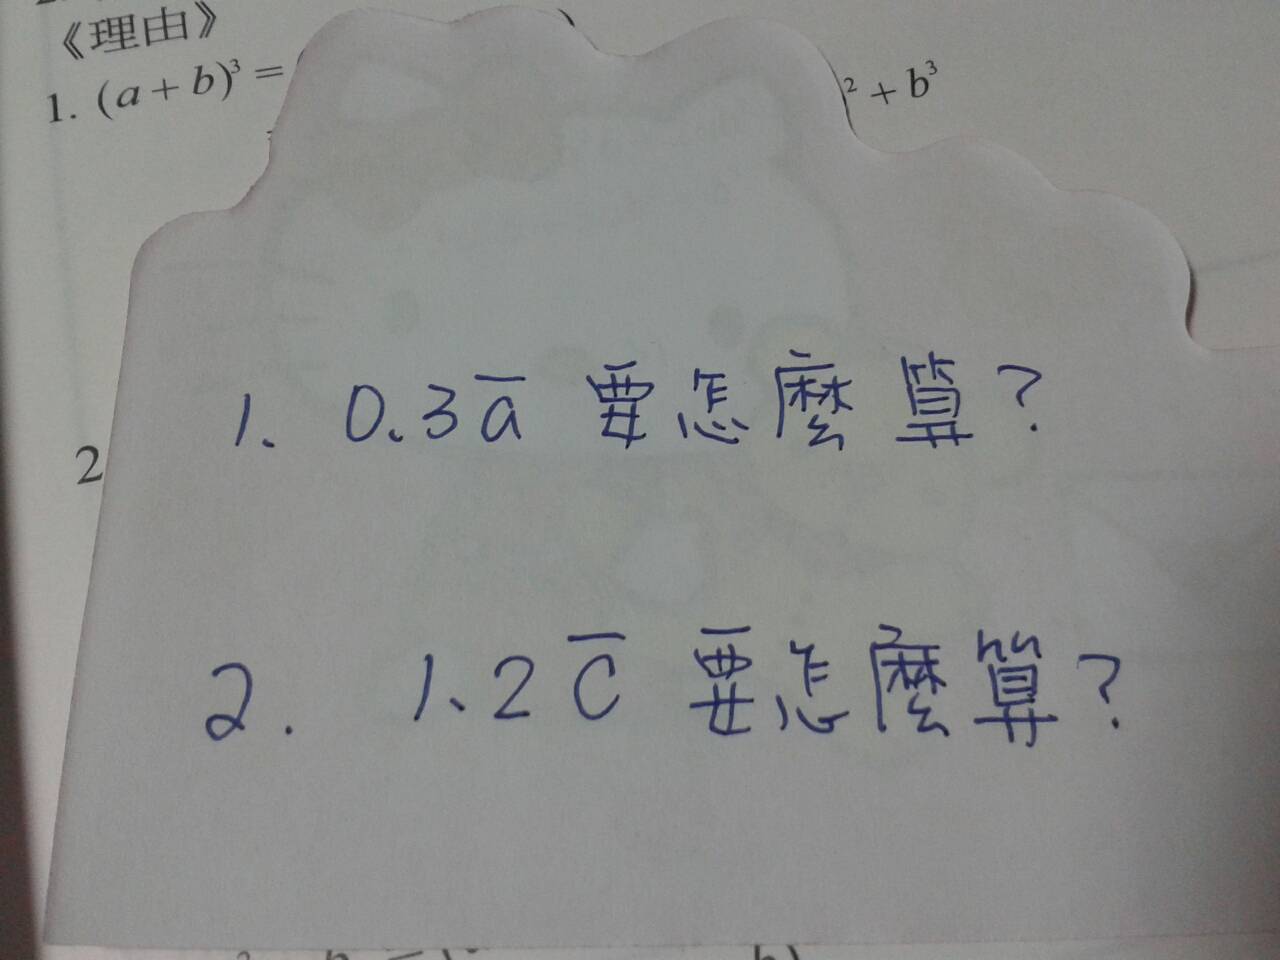 《理由》
1. (a + b)³ =
² + b³
1. 0.3a̅ 要怎麼算?
2
2. 1.2c̅ 要怎麼算?